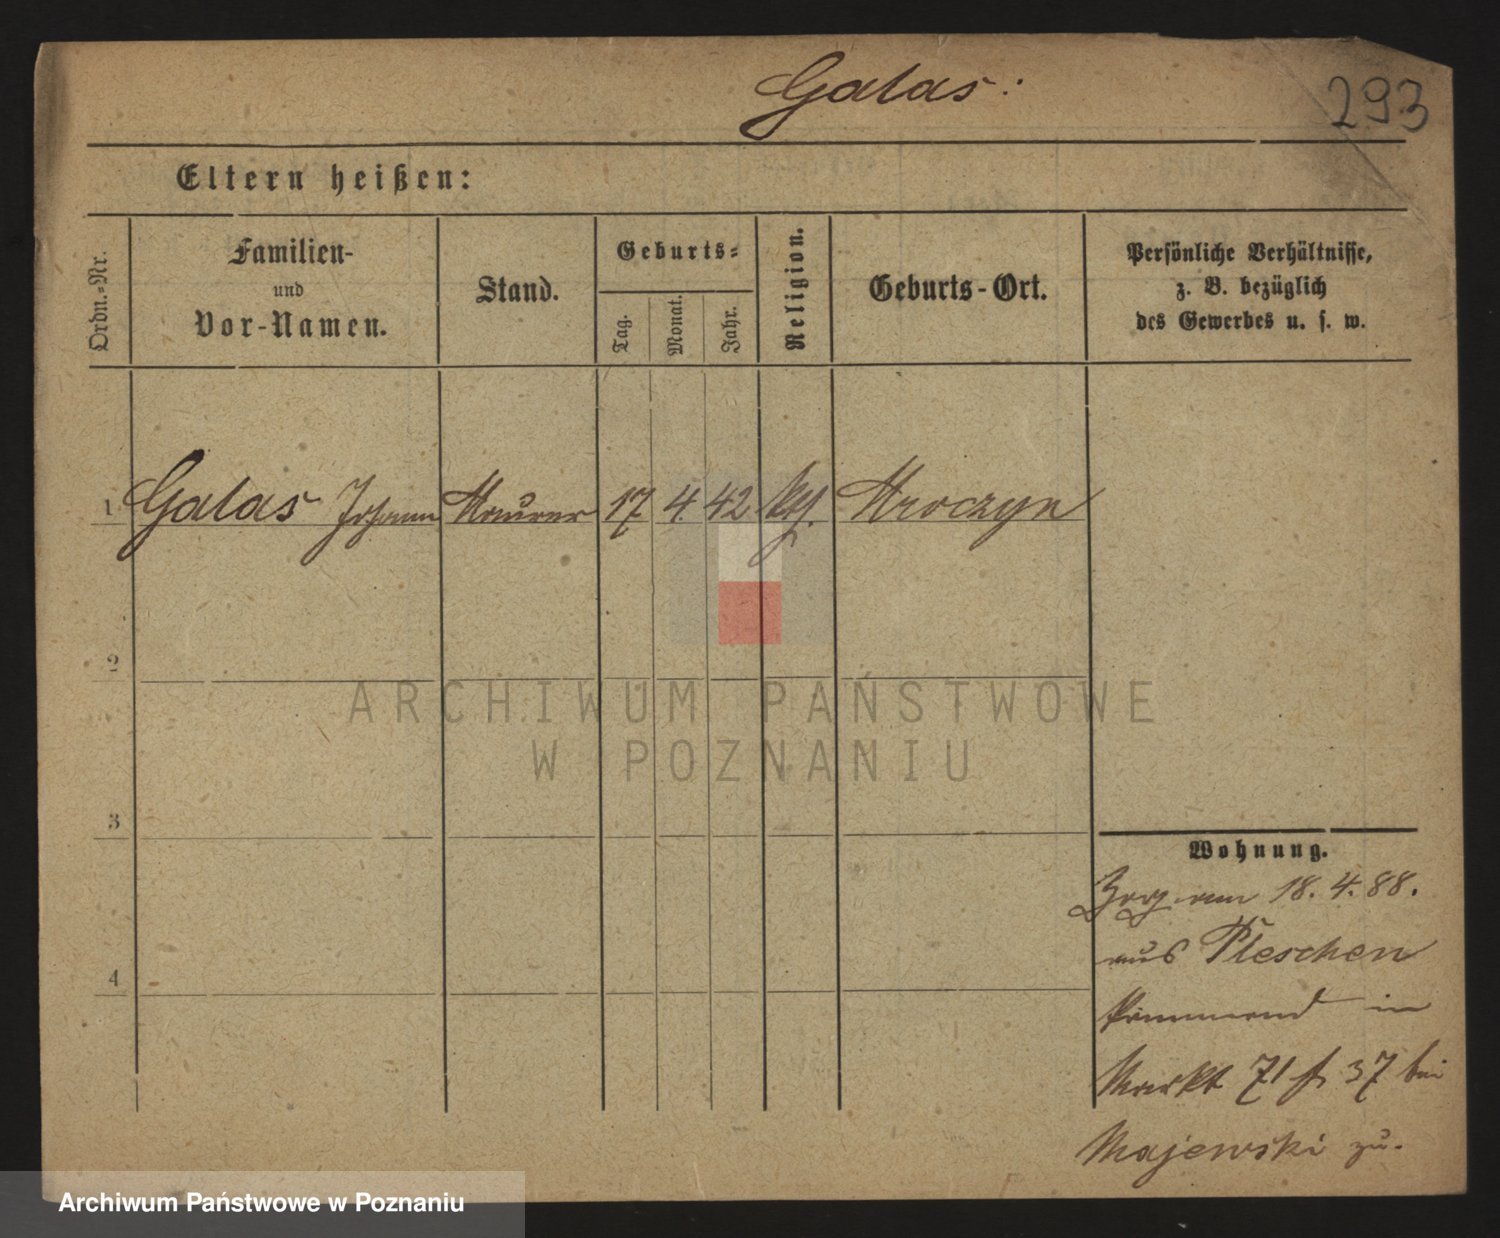 Galas:
293
Eltern heißen:
Ordn.-Nr.
Familien-
und
Vor-Namen.
Stand.
Geburts-
Tag.
Monat.
Jahr.
Religion.
Geburts-Ort.
Persönliche Verhältnisse,
z. B. bezüglich
des Gewerbes u. s. w.
1 Galas Johann Maurer 17 4. 42 kth. Mroczyn
2
3
4
Wohnung.
Zog am 18. 4. 88.
aus Pleschen
in
Markt 71 37 bei
Majewski zu.
ARCHIWUM PAŃSTWOWE
W POZNANIU
Archiwum Państwowe w Poznaniu